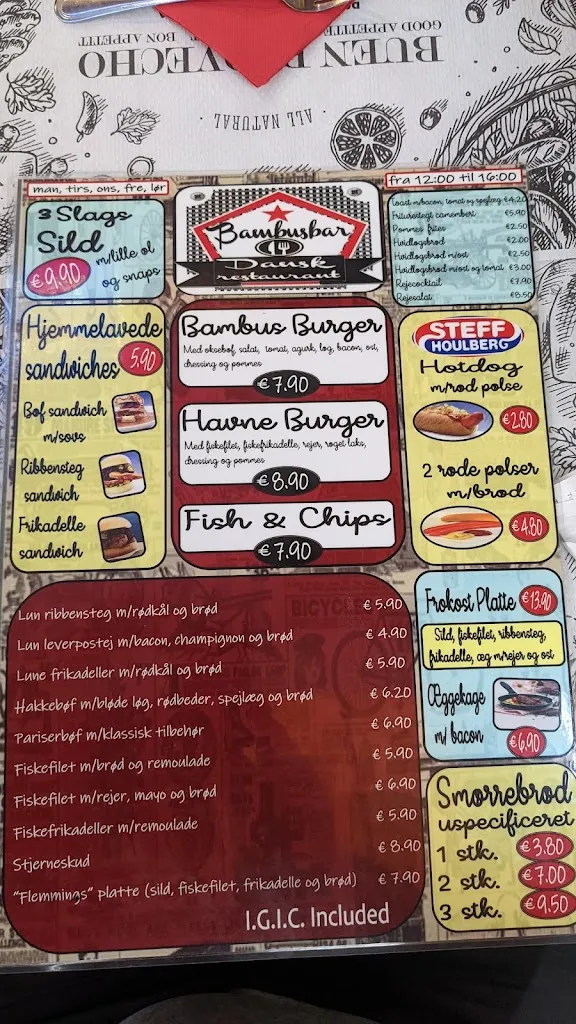 BUEN
GOOD APPETITE
BON APPETIT
· ALL NATURAL ·
man, tirs, ons, fre, lør
fra 12:00 til 16:00
3 Slags
Sild
€ 9,90
m/lille øl
og snaps
Bambusbar
Dansk
restaurant
Toast m/bacon, tomat og spejlæg € 4.20
Friturestegt camembert €5.90
Pommes frites €2.50
Hvidløgsbrød €2.00
Hvidløgsbrød m/ost €2.50
Hvidløgsbrød m/ost og tomat €3.00
Rejecocktail €7.90
Rejesalat €8.50
Hjemmelavede
sandwiches 5.90
Bøf sandwich
m/sovs
Ribbensteg
sandwich
Frikadelle
sandwich
Bambus Burger
Med oksebøf, salat, tomat, agurk, løg, bacon, ost,
dressing og pommes
€ 7.90
Havne Burger
Med fiskefilet, fiskefrikadelle, rejer, røget laks,
dressing og pommes
€ 8.90
Fish & Chips
€ 7.90
STEFF
HOULBERG
Hotdog
m/rød pølse
€ 2.80
2 røde pølser
m/brød
€ 4.80
Lun ribbensteg m/rødkål og brød € 5.90
Lun leverpostej m/bacon, champignon og brød € 4.90
Lune frikadeller m/rødkål og brød € 5.90
Hakkebøf m/bløde løg, rødbeder, spejlæg og brød € 6.20
Pariserbøf m/klassisk tilbehør € 6.90
Fiskefilet m/brød og remoulade € 5.90
Fiskefilet m/rejer, mayo og brød € 6.90
Fiskefrikadeller m/remoulade € 5.90
Stjerneskud € 8.90
"Flemmings" platte (sild, fiskefilet, frikadelle og brød) € 7.90
I.G.I.C. Included
Frokost Platte €13.90
Sild, fiskefilet, ribbensteg,
frikadelle, æg m/rejer og ost
Æggekage
m/ bacon
€6,90
Smørrebrød
uspecificeret
1 stk. € 3.80
2 stk. € 7.00
3 stk. € 9.50